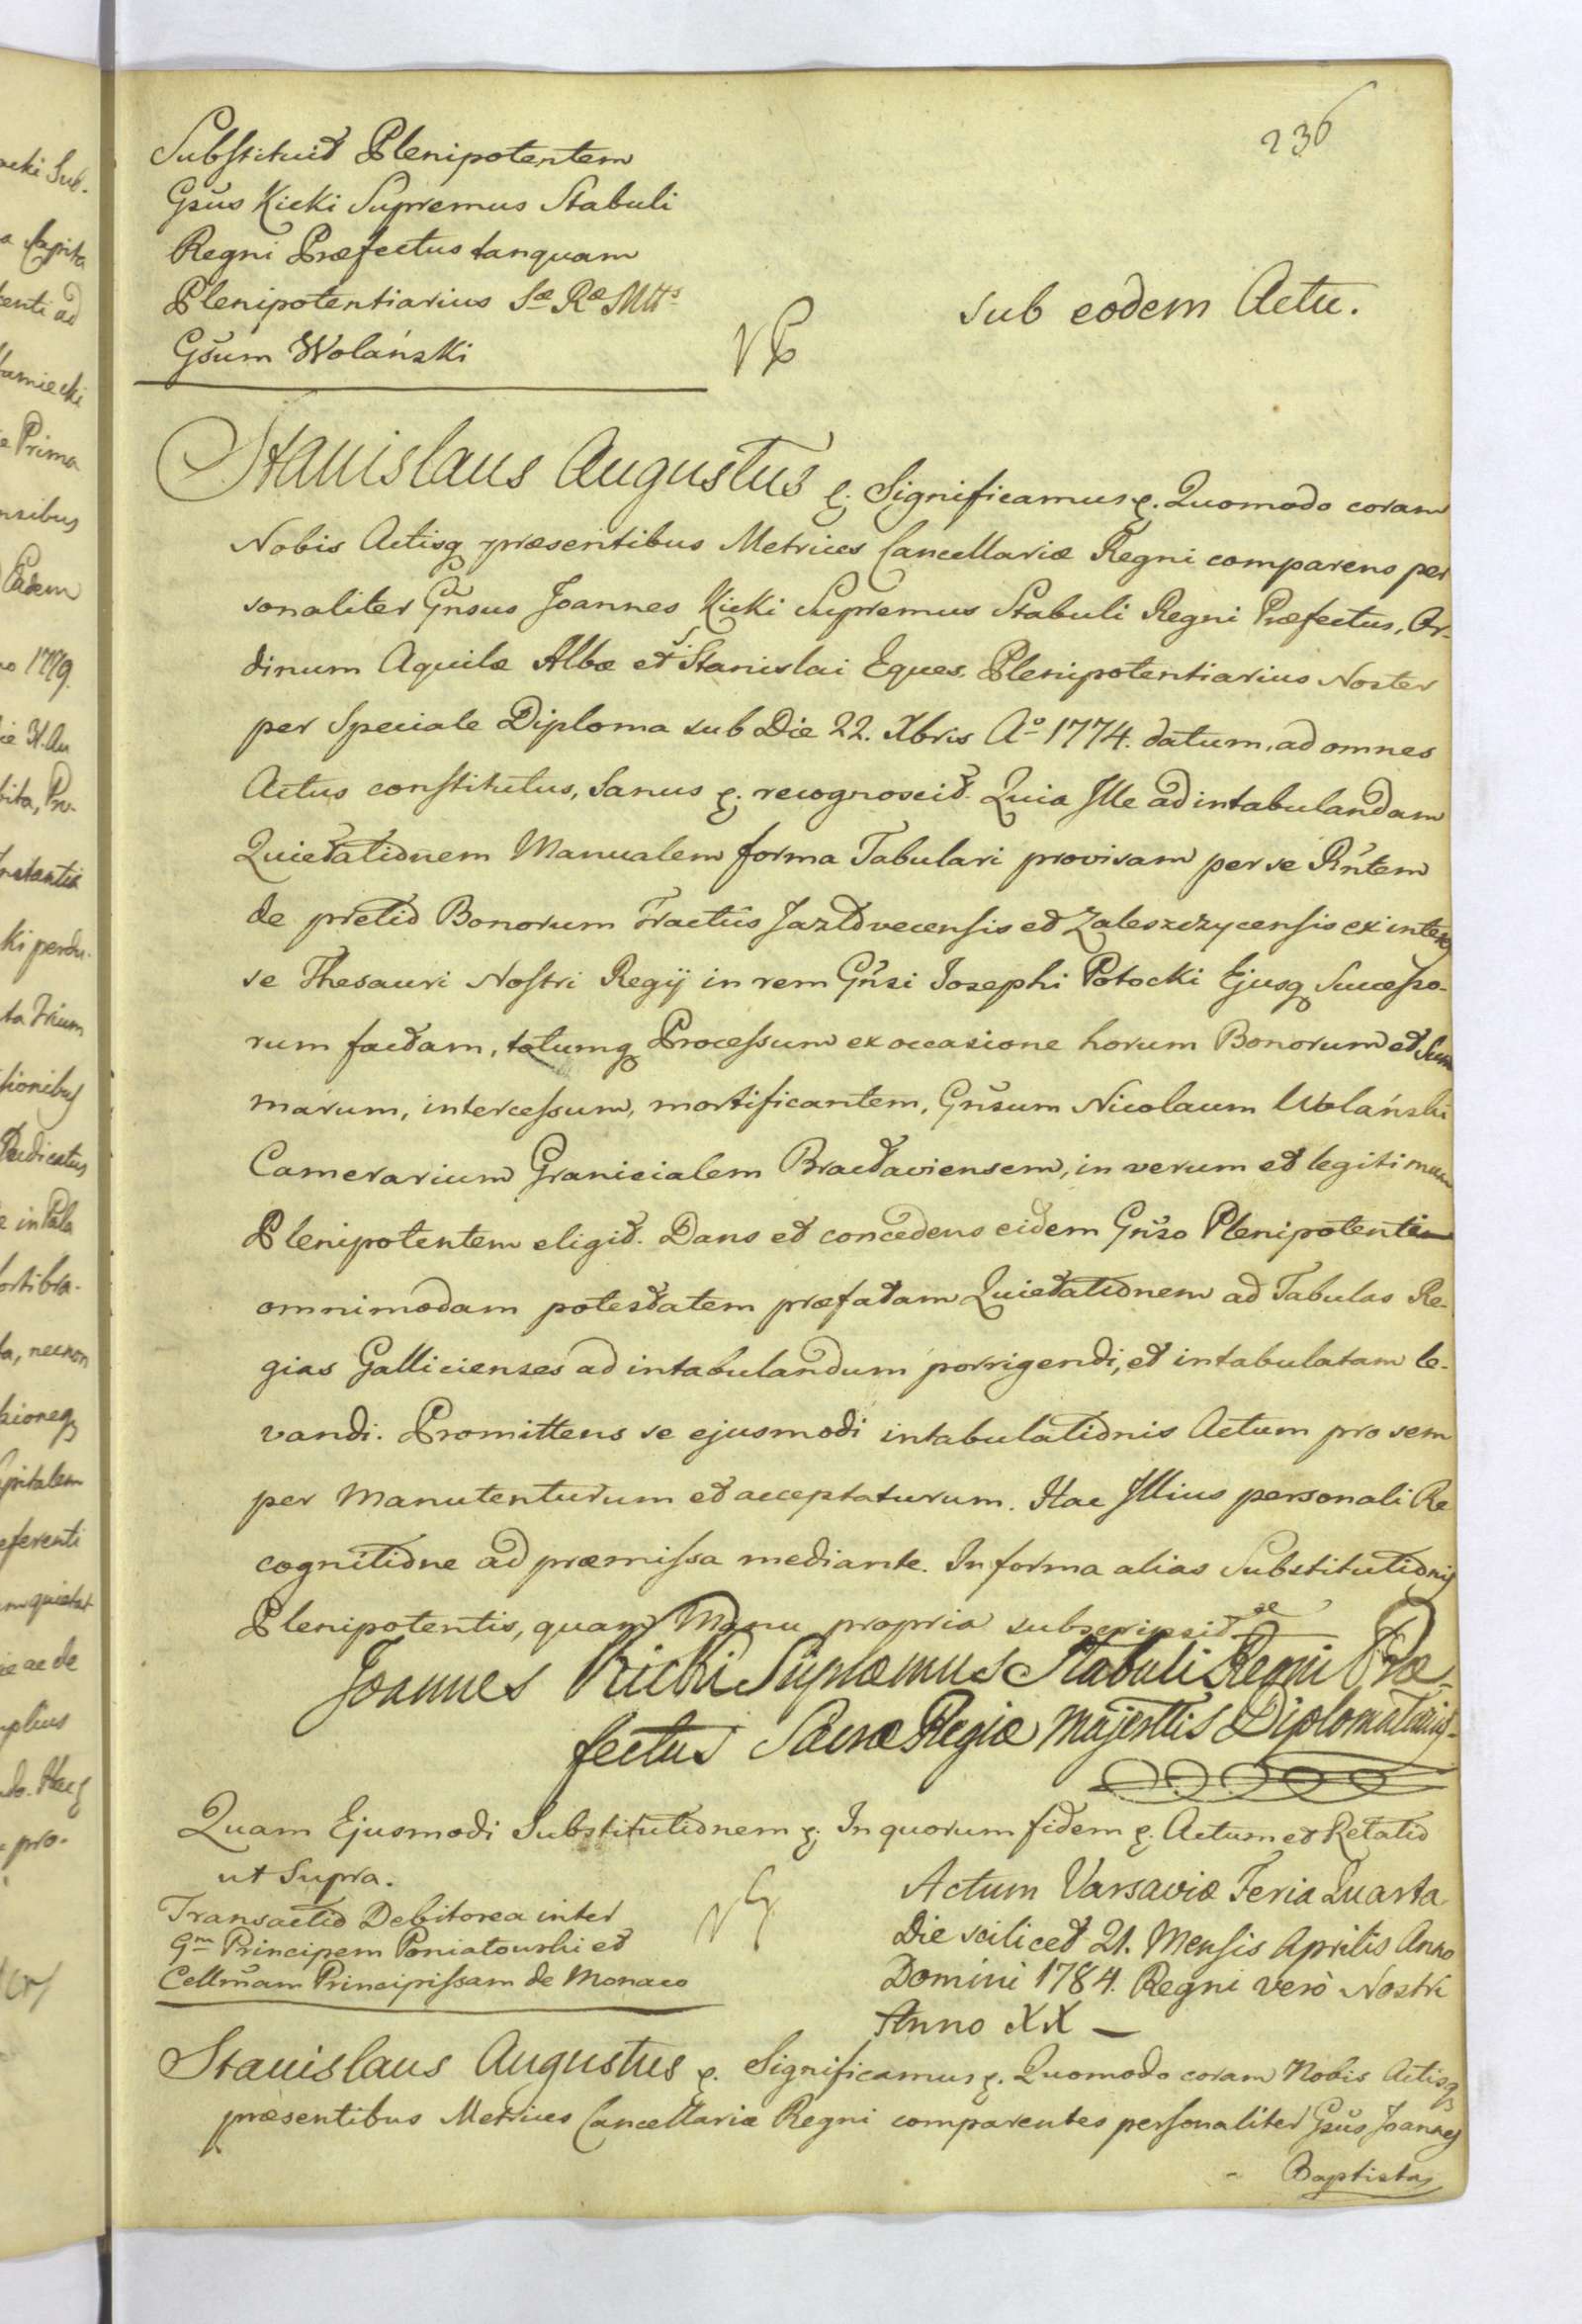 236
Substituit Plenipotentem
Gsus Kicki Supremus Stabuli
Regni Præfectus tanquam
Plenipotentiarius Sæ Ræ Mttis
Gsum Wolański
sub eodem Actu.
Stanislaus Augustus &. Significamus &. Quomodo coram
Nobis Actisq præsentibus Metrices Cancellariæ Regni comparens per
sonaliter Gnsus Joannes Kicki Supremus Stabuli Regni Præfectus, Or-
dinum Aquilæ Albæ et Si Stanislai Eques, Plenipotentiarius Noster
per Speciale Diploma sub Die 22. Xbris Ao 1774. datum, ad omnes
Actus constitutus, Sanus &. recognoscit. Quia Ille ad intabulandam
Quietationem Manualem forma Tabulari provisam per se Rntem
de pretio Bonorum Tractûs Jazłovecensis et Zaleszczycensis ex interes
se Thesauri Nostri Regij in rem Gnsi Josephi Potocki Ejusq Successo-
rum factam, totumq Processum ex occasione horum Bonorum et Sum
marum, intercessum, mortificantem, Gnsum Nicolaum Wolański
Camerarium Granicialem Bracłaviensem, in verum et legitimum
Plenipotentem eligit. Dans et concedens eidem Gnso Plenipotenti
omnimodam potestatem præfatam Quietationem ad Tabulas Re-
gias Gallicienses ad intabulandum porrigendi, et intabulatam le-
vandi. Promittens se ejusmodi intabulationis Actum pro sem
per Manutenturum et acceptaturum. Hac Illius personali Re
cognitione ad præmissa mediante. In forma alias Substitutionis
Plenipotentis, quam Manu propria subscripsit
Joannes Kicki Supræmus Stabuli Regni Præ-
fectus Sacræ Regiæ Majesttis Diplomatarius
Quam Ejusmodi Substitutionem &. In quorum fidem &. Actum et Relatio
ut Supra.
Transactio Debitorea inter
Gm Principem Poniatowski et
Cellmam Principissam de Monaco
Actum Varsaviæ Feria Quarta
Die scilicet 21. Mensis Aprilis Anno
Domini 1784. Regni verò Nostri
Anno XX —
Stanislaus Augustus &. Significamus &. Quomodo coram Nobis Actisq
præsentibus Metrices Cancellariæ Regni comparentes personaliter Gsus Joannes
Baptista